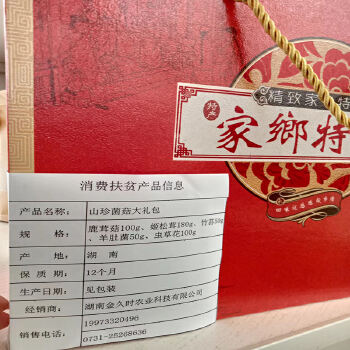 精致家
特产
家鄉特
回味悠悠感故乡情
消费扶贫产品信息
产品名称: 山珍菌菇大礼包
规 格: 鹿茸菇100g、姬松茸180g、竹荪50g
、羊肚菌50g、虫草花100g
产 地: 湖 南
保 质 期: 12个月
生产日期: 见包装
经销商: 湖南金久时农业科技有限公司
19973320496
销售电话: 0731-25268636